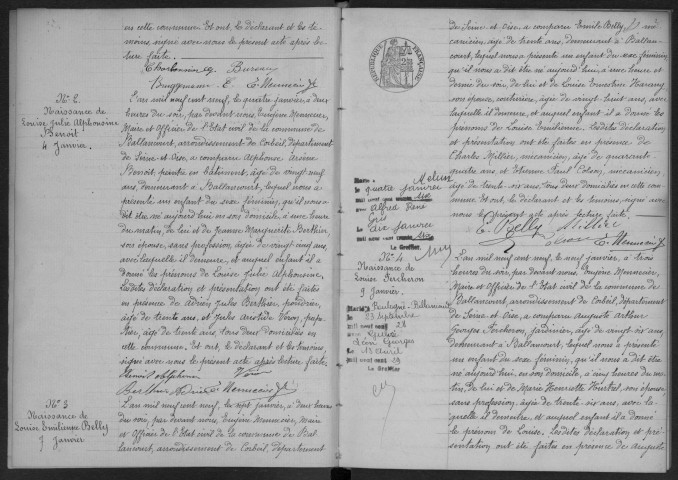 en cette commune. Et ont, le déclarant et les té-
moins, signé avec nous le présent acte après lec-
ture faite.
Charbonnier Bureau
E. Meunier
N° 2
Naissance de
Louise Julie Alphonsine
Benoit
4 Janvier.
L'an mil neuf cent neuf, le quatre janvier, à deux
heures du soir, par devant nous, Eugène Meunier,
Maire et Officier de l'Etat civil de la commune de
Ballancourt, arrondissement de Corbeil, département
de Seine et Oise, a comparu Alphonse Arsène
Benoit, peintre en bâtiment, âgé de vingt neuf
ans, demeurant à Ballancourt, lequel nous a
présenté un enfant du sexe féminin, qu'il nous a
dit être né aujourd'hui en son domicile, à une heure
du matin, de lui et de Jeanne Marguerite Berthier
son épouse, sans profession, âgée de vingt cinq ans,
avec laquelle il demeure, et auquel enfant il a
donné les prénoms de Louise Julie Alphonsine.
Lesdites déclaration et présentation ont été faites
en présence de Adrien Jules Berthier, poudrier,
âgé de trente ans, et Jules Aristide Viron, pape-
tier, âgé de trente ans, tous deux domiciliés en
cette commune. Et ont, le déclarant et les témoins
signé avec nous le présent acte après lecture faite.
Benoit Alphonse
Berthier E. Meunier
N° 3
Naissance de
Louise Emilienne Belly
7 Janvier
L'an mil neuf cent neuf, le sept janvier, à deux heures
du soir, par devant nous, Eugène Meunier, Maire
et Officier de l'Etat civil de la commune de Bal-
lancourt, arrondissement de Corbeil, département
de Seine et Oise, a comparu Emile Belly, mé-
canicien, âgé de trente ans, demeurant à Ballan-
court, lequel nous a présenté un enfant du sexe féminin
qu'il nous a dit être né aujourd'hui, à une heure et
demie du soir, de lui et de Louise Ernestine Harang
son épouse, couturière, âgée de vingt huit ans, avec
laquelle il demeure, et auquel enfant il a donné les
prénoms de Louise Emilienne. Lesdites déclaration
et présentation ont été faites en présence de
Charles Millié, mécanicien, âgé de quarante
quatre ans et Etienne Paul Colson, mécanicien,
âgé de trente six ans, tous deux domiciliés en cette com-
mune. Et ont, le déclarant et les témoins, signé avec
nous le présent acte après lecture faite.
E. Belly E. Meunier
RÉPUBLIQUE FRANÇAISE
Marié à Melun
le quatre janvier
mil neuf cent trente
avec Alfred René
le dix janvier
mil neuf cent trente
Le Greffier,
N° 4
Naissance de
Louise Percheron
9 Janvier.
le 23 septembre
mil neuf cent 28
avec
Léon Georges
le 13 Avril
mil neuf cent
Le Greffier
L'an mil neuf cent neuf, le neuf janvier, à trois
heures du soir, par devant nous, Eugène Meunier,
Maire et Officier de l'Etat civil de la commune de
Ballancourt, arrondissement de Corbeil, département
de Seine et Oise, a comparu Auguste Arthur
Georges Percheron, jardinier, âgé de vingt six ans,
demeurant à Ballancourt, lequel nous a présenté
un enfant du sexe féminin, qu'il nous a dit être
né aujourd'hui, en son domicile, à cinq heures du ma-
tin, de lui et de Marie Henriette, son épouse,
sans profession, âgée de trente six ans, avec la-
quelle il demeure, et auquel enfant il a donné
le prénom de Louise. Lesdites déclaration et pré-
sentation ont été faites en présence de Auguste